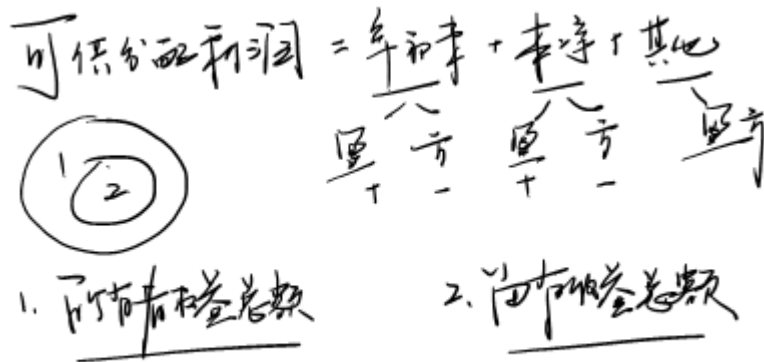 可供分配利润 = 年初未 + 本净 + 其他
贷 方 贷 方 贷方
+ - + -
1 2
1. 所有者权益总额 2. 留存收益总额